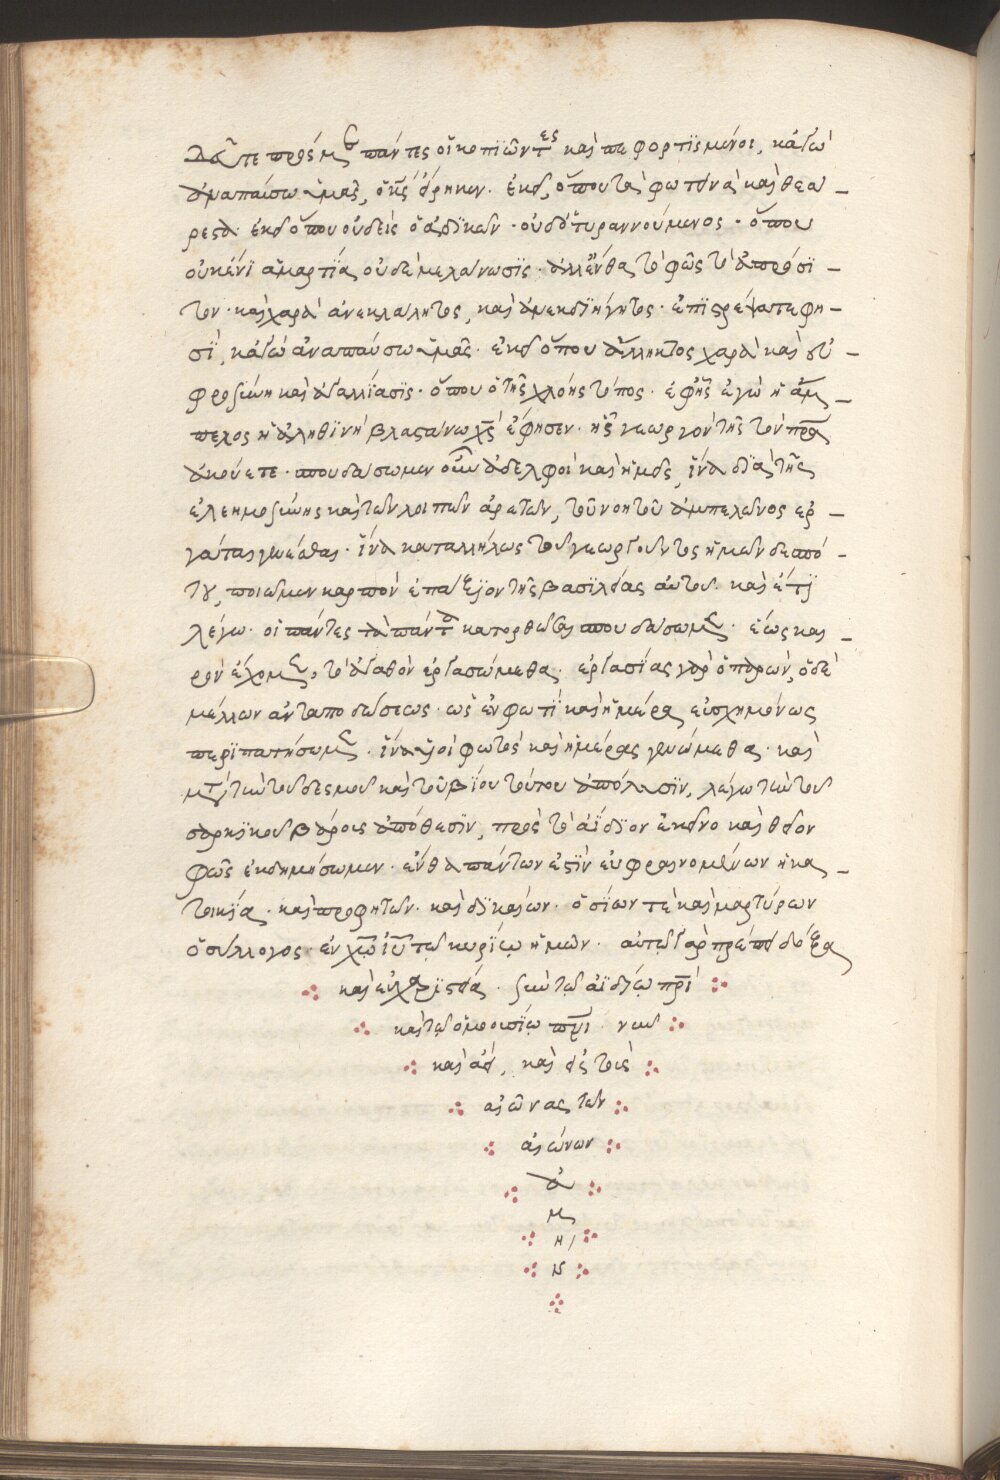 Δεῦτε πρός με πάντες οἱ κοπιῶντες καὶ πεφορτισμένοι, κἀγὼ
ἀναπαύσω ὑμᾶς, ὁ χς εἴρηκεν· ἐκεῖ, ὅπου τὰ φωτεινὰ καὶ θεα-
ρεστα· ἐκεῖ ὅπου οὐδεὶς ὁ ἀδικῶν· οὐδὲ τυραννούμενος· ὅπου
οὐκ ἔνι ἁμαρτία, οὐδὲ μελάνωσις· ἀλλ' ἔνθα τὸ φῶς τὸ ἀπρόσϊ-
τον· καὶ χαρὰ ἀνεκλάλητος, καὶ ἀνεκδιήγητος· ἐπιστρέψατε φη-
σὶ, κἀγὼ ἀναπαύσω ὑμᾶς· ἐκεῖ ὅπου ἄλληκτος χαρὰ καὶ εὐ-
φροσύνη καὶ ἀγαλλίασις· ὅπου ὁ τῆς χλόης τόπος· ἐγὼ ἡ ἄμ-
πελος ἡ ἀληθϊνὴ βλαστάνω χς ἔφησεν· γεωργὸν τὸν πρα
ἀκούετε· σπουδάσωμεν οὖν ἀδελφοὶ καὶ ἡμεῖς, ἵνα διὰ τῆς
ἐλεημοσύνης καὶ τῶν λοιπῶν ἀρετῶν, τοῦ νοητοῦ ἀμπελῶνος ἐρ-
γάτας γενέσθαι· ἵνα καταλλήλως τοῦ γεωργοῦντος ἡμῶν δεσπό-
του, ποιῶμεν καρπὸν ἐπάξιον τῆς βασιλείας αὐτοῦ· καὶ ἔτι
λέγω· οἱ πάντες τὰ πάντα κατορθῶσαι σπουδάσωμεν· ἕως και-
ρὸν ἔχομεν, τὸ ἀγαθὸν ἐργασώμεθα· ἐργασίας γὰρ ὁ παρὼν, ὁ δὲ
μέλλων ἀνταποδώσεως· ὡς ἐν φωτὶ καὶ ἡμέρα εὐσχημόνως
περιπατήσωμεν· ἵνα υἱοὶ φωτὸς καὶ ἡμέρας γενώμεθα· καὶ
μετὰ τὴν τοῦ δεσμοῦ καὶ τοῦ βίου τούτου ἀπόλυσιν, λέγω τὴν τοῦ
σαρκικοῦ βάρους ἀπόθεσιν, πρὸς τὸ ἀΐδιον ἐκεῖνο καὶ θεῖον
φῶς ἐκδημήσωμεν· ἔνθα πάντων ἐστὶν εὐφραινομένων ἡ κα-
τοικία· καὶ προφητῶν· καὶ δικαίων· ὁσίων τὲ καὶ μαρτύρων
ὁ σύλλογος· ἐν χω ιυ τῷ κυρίῳ ἡμῶν· αὐτῷ γὰρ πρέπει δόξα
καὶ εὐχαριστία· σὺν τῷ ἀϊδίῳ πρι
καὶ τῷ ὁμοουσίῳ πνι· νῦν
καὶ ἀεὶ, καὶ εἰς τοὺς
αἰῶνας τῶν
αἰώνων
ἀ
μ
ή
ν